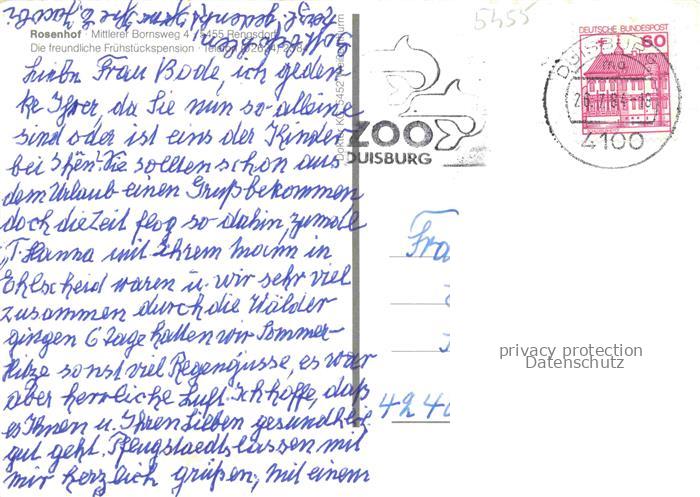 Rosenhof · Mittlerer Bornsweg 4 · 5455 Rengsdorf
Die freundliche Frühstückspension · Telefon
5455
Liebe Frau Bode, ich geden
ke Ihrer, da Sie nun so alleine
sind oder ist eins der Kinder
bei Ihnen. Sie sollten schon aus
dem Urlaub einen Gruß bekommen
doch die Zeit flog so dahin, zumal
T. Hanna mit Ihrem Mann in
Ehlscheid waren u. wir sehr viel
zusammen durch die Wälder
gingen 6 Tage hatten wir Sommer-
hitze sonst viel Regengüsse, es war
aber herrliche Luft. Ich hoffe, daß
es Ihnen u. Ihren Lieben gesundheitl.
gut geht. Pfeugstaedts lassen mit
mir herzlich grüßen, mit einem
ZOO
DUISBURG
DEUTSCHE BUNDESPOST
60
DUISBURG
26.7.84-18
4100
Fra
424
privacy protection
Datenschutz